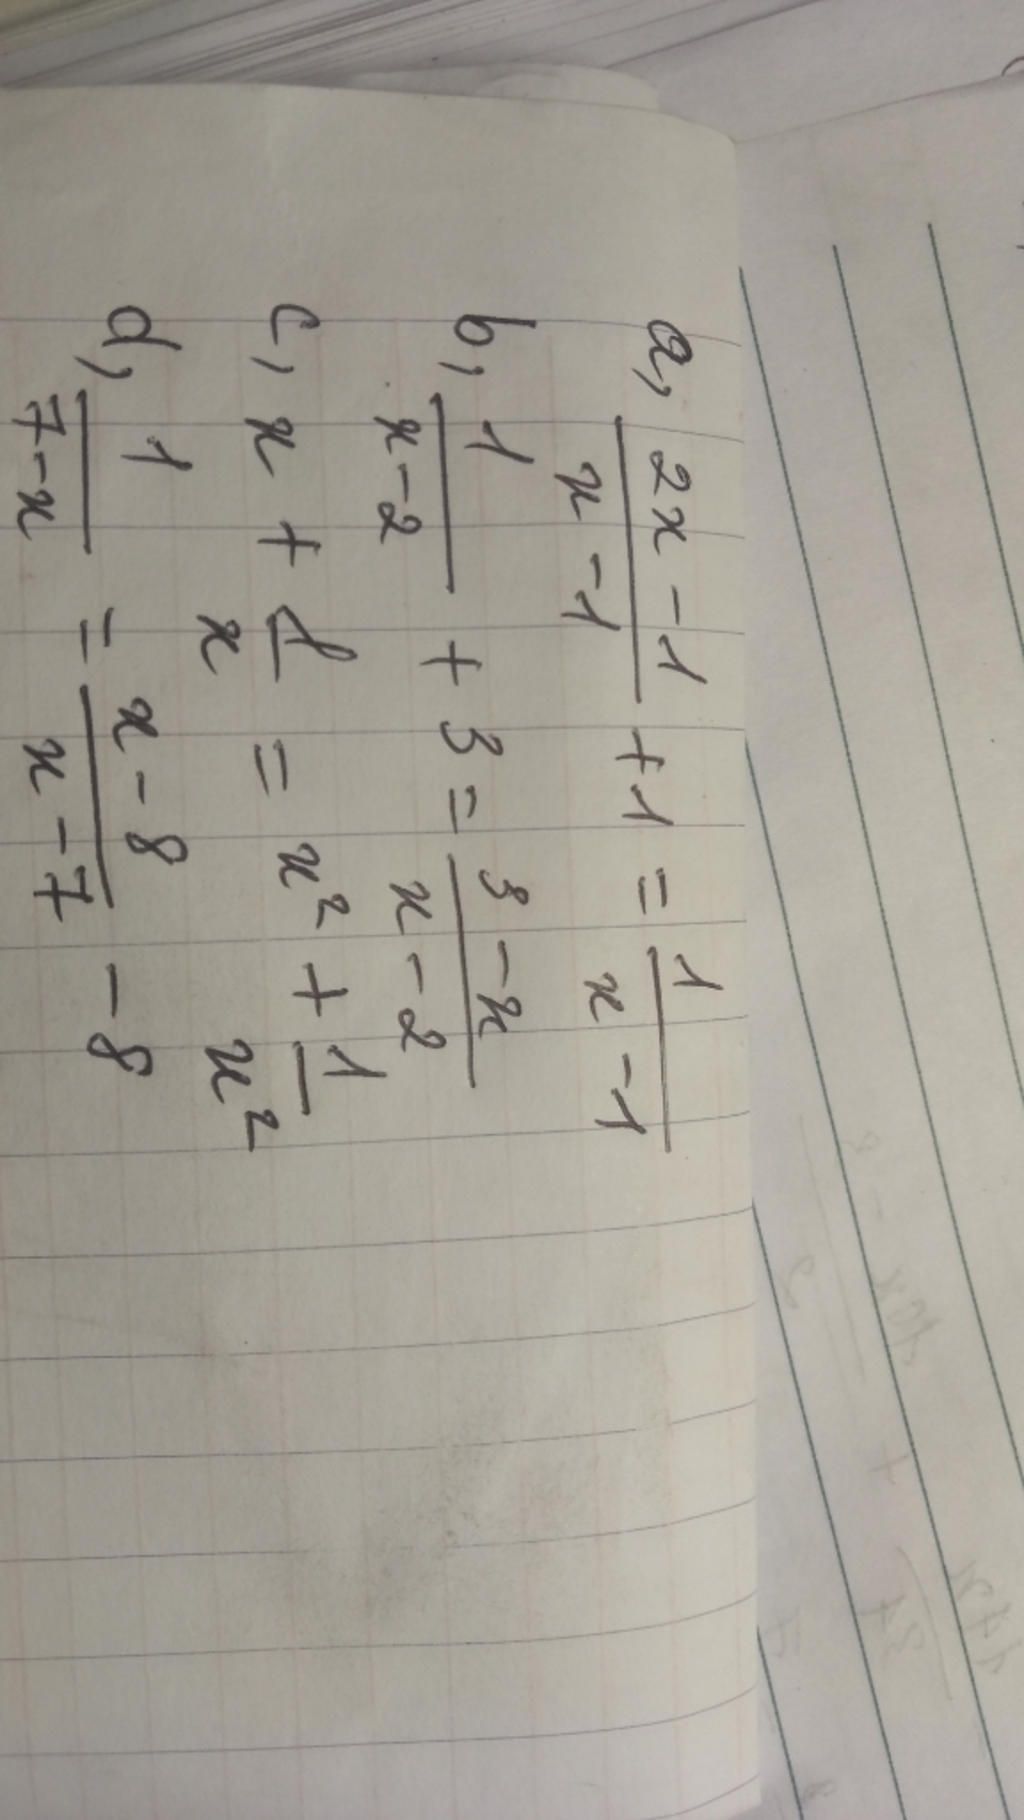 a, (2x - 1)/(x - 1) + 1 = 1/(x - 1)
b, 1/(x - 2) + 3 = (3 - x)/(x - 2)
c, x + 1/x = x² + 1/x²
d, 1/(7 - x) = (x - 8)/(x - 7) - 8